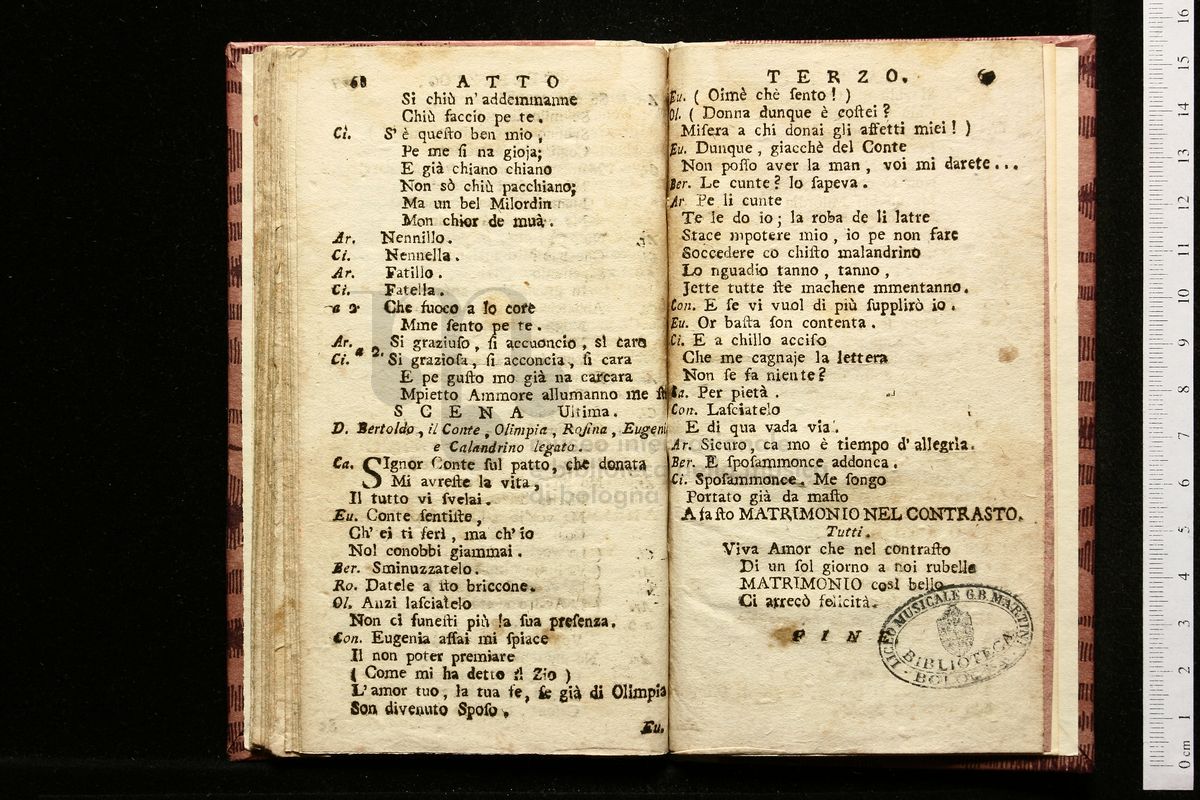 68 ATTO
Si chiù n'addemmanne
Chiù faccio pe te.
Ci. S'è questo ben mio,
Pe me si na gioja;
E già chiano chiano
Non sò chiù pacchiano;
Ma un bel Milordin
Mon chior de muà.
Ar. Nennillo.
Ci. Nennella.
Ar. Fatillo.
Ci. Fatella.
a 2. Che fuoco a lo core
Mme sento pe te.
Ar. Si graziuso, si accuoncio, si caro
a 2.
Ci. Si graziosa, si acconcia, si cara
E pe gusto mo già na carcara
Mpietto Ammore allumanno me
SCENA Ultima.
D. Bertoldo, il Conte, Olimpia, Rosina, Eugeni
e Calandrino legato.
Ca. SIgnor Conte sul patto, che donata
Mi avreste la vita,
Il tutto vi svelai.
Eu. Conte sentiste,
Ch'ei ti ferì, ma ch'io
Nol conobbi giammai.
Ber. Sminuzzatelo.
Ro. Datele a sto briccone.
Ol. Anzi lasciatelo
Non ci funesti più la sua presenza.
Con. Eugenia assai mi spiace
Il non poter premiare
( Come mi ha detto il Zio )
L'amor tuo, la tua fe, se già di Olimpia
Son divenuto Sposo.
Eu.
TERZO. 69
Eu. ( Oimè chè sento! )
Ol. ( Donna dunque è costei?
Misera a chi donai gli affetti miei! )
Eu. Dunque, giacchè del Conte
Non posso aver la man, voi mi darete...
Ber. Le cunte? lo sapeva.
Ar. Pe li cunte
Te le do io; la roba de li latre
Stace mpotere mio, io pe non fare
Soccedere co chisto malandrino
Lo nguadio tanno, tanno,
Jette tutte ste machene mmentanno.
Con. E se vi vuol di più supplirò io.
Eu. Or basta son contenta.
Ci. E a chillo acciso
Che me cagnaje la lettera
Non se fa niente?
Ca. Per pietà.
Con. Lasciatelo
E di qua vada via.
Ar. Sicuro, ca mo è tiempo d'allegria.
Ber. E sposammonce addonca.
Ci. Sposammonce. Me songo
Portato già da masto
A fa sto MATRIMONIO NEL CONTRASTO.
Tutti.
Viva Amor che nel contrasto
Di un sol giorno a noi rubelle
MATRIMONIO così bello
Ci arrecò felicità.
FIN
LICEO MUSICALE G.B. MARTINI
BIBLIOTECA
BOLOGNA